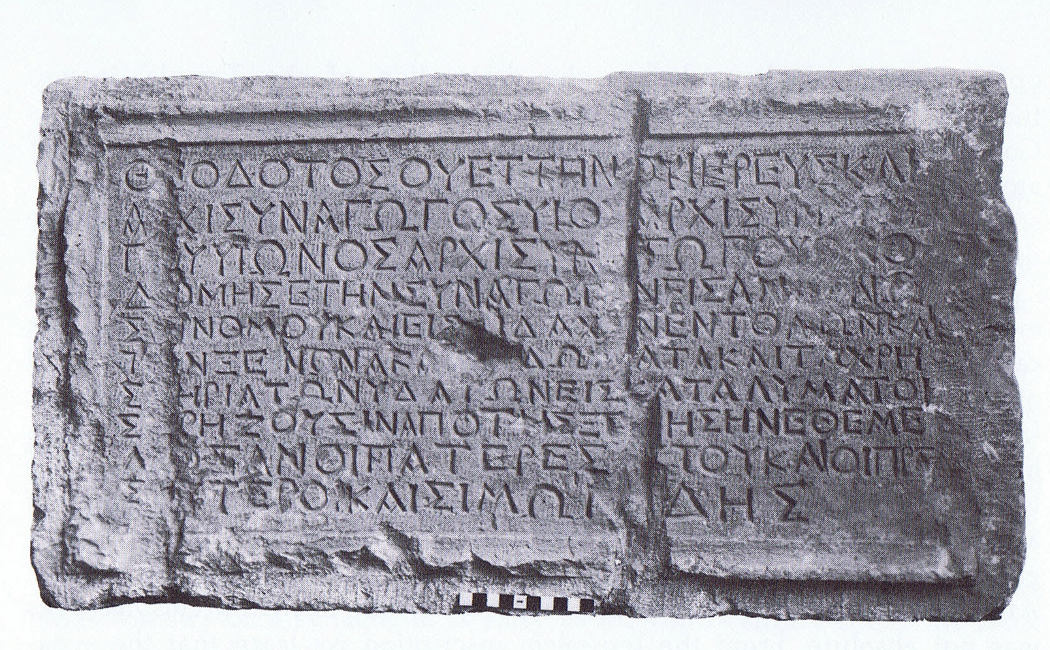 ΘΕΟΔΟΤΟΣΟΥΕΤΤΗΝΟΥΙΕΡΕΥΣΚΑΙ
ΑΡΧΙΣΥΝΑΓΩΓΟΣΥΙΟΣΑΡΧΙΣΥΝ
ΓΟΥΥΙΩΝΟΣΑΡΧΙΣΥΝΑΓΩΓΟΥΩΚΟ
ΔΟΜΗΣΕΤΗΝΣΥΝΑΓΩΓΗΝΕΙΣΑΝ Ω
ΣΙΝΝΟΜΟΥΚΑΙΕΙΣ ΔΑΧΗΝΕΝΤΟΛΩΝΚΑΙ
ΤΟΝΞΕΝΩΝΑΚΑ ΔΩΜΑΤΑΚΑΙΤΑΧΡΗ
ΣΤΗΡΙΑΤΩΝΥΔΑΤΩΝΕΙΣΚΑΤΑΛΥΜΑΤΟΙ
ΣΧΡΗΖΟΥΣΙΝΑΠΟΤΗΣΞΕΝΗΣΗΝΕΘΕΜΕ
ΛΙΩΣΑΝΟΙΠΑΤΕΡΕΣΑΥΤΟΥΚΑΙΟΙΠΡΕ
ΣΒΥΤΕΡΟΙΚΑΙΣΙΜΩΝΙΔΗΣ